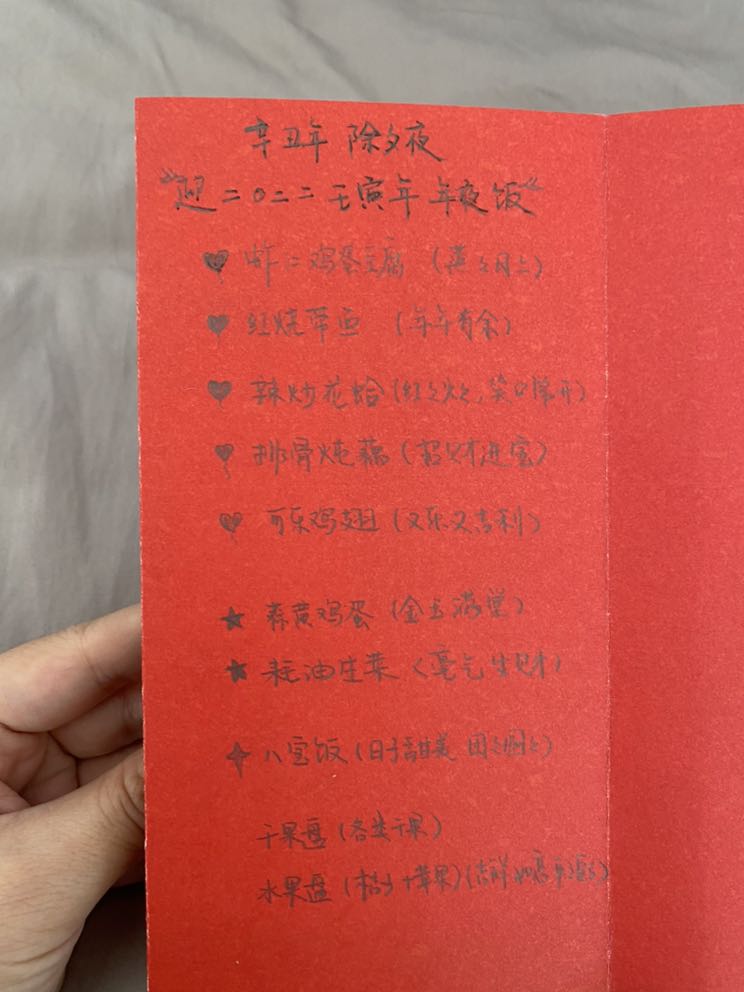 辛丑年 除夕夜
"迎二〇二二壬寅年 年夜饭"
虾仁鸡蛋豆腐 (蒸蒸日上)
红烧带鱼 (年年有余)
辣炒花蛤 (红红火火, 笑口常开)
排骨炖藕 (招财进宝)
可乐鸡翅 (又乐又吉利)
韭黄鸡蛋 (金玉满堂)
耗油生菜 (豪气生财)
八宝饭 (日子甜美 团团圆圆)
干果盘 (各类干果)
水果盘 (桔子+苹果) (吉祥如意 平平安安)